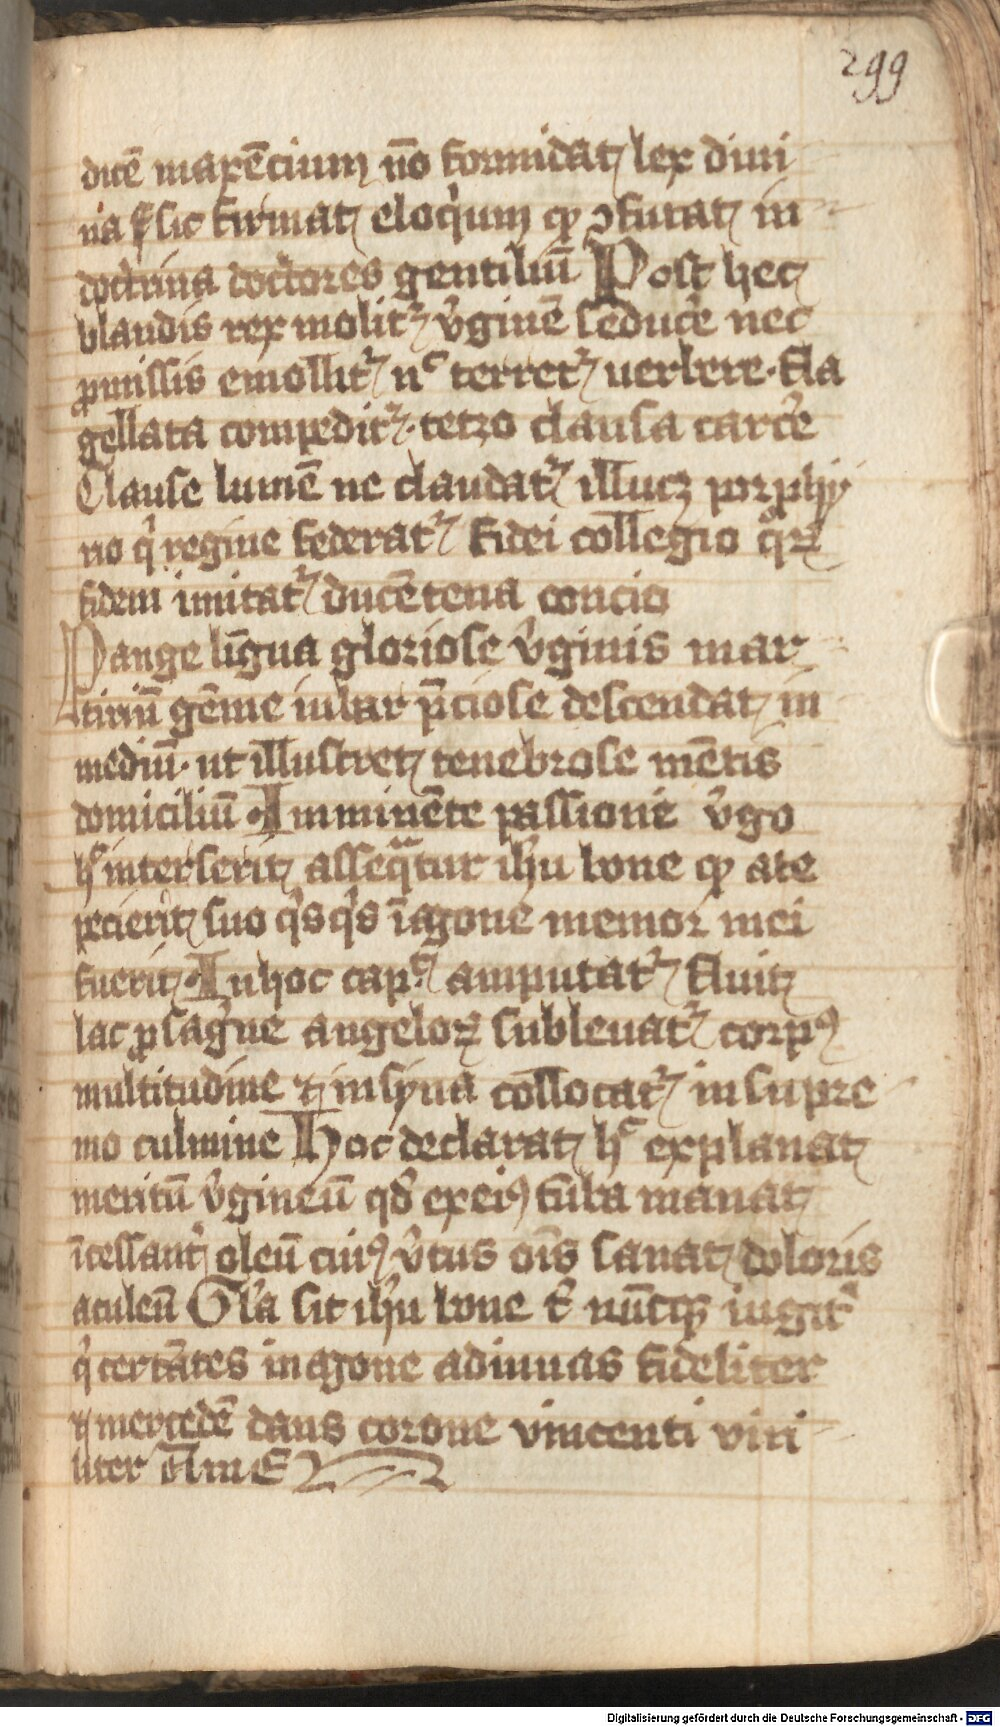 299
dicē maxēcium nō formidat lex diui
na sic firmat eloq̇um qp ꝯfutat in
doctrina doctores gentiliū Post hec
blandis rex molitᷣ v̓ginē seduc̓e nec
ꝓmissis emollitᷣ nᶜ terretᷣ uerbere · fla
gellata compeditᷣ · tetro clausa carc̓e
Clause lumē ne claudatᷣ illucꝫ porphy
rio q̇ regine federatᷣ fidei collegio q̇ꝝ
fidem imitatᷣ ducētena concio
Pange līgua gloriose v̓ginis mar
tiriū gēme iubar p̄ciose descendat in
mediū · ut illustret tenebrose mētis
domiciliū · Imminēte passione v̓go
hᶜ interserit asseqᵃtur ih̓u bone qp ate
pecierit suo q̇sq̇s īagone memor mei
fuerit · In hoc capᷣ amputatᷣ fluit
lac ꝓ sag̓ne angeloꝝ subleuatᷣ corpꝰ
multitudine ⁊ in syna collocatᷣ in supre
mo culmine Hoc declarat hᶜ explanat
meritū v̓gineū qd̓ ex eiꝰ tūba manat
īcessant̓ oleū cuiꝰ v̓tus oīs sanat doloris
aculeū Gl̓a sit ih̓u bone t̓ nūcqꝫ iugit̓
q̇ certātes in agone adiuuas fideliter
⁊ mercedē dans corone vincenti viri
liter AmE
Digitalisierung gefördert durch die Deutsche Forschungsgemeinschaft - DFG